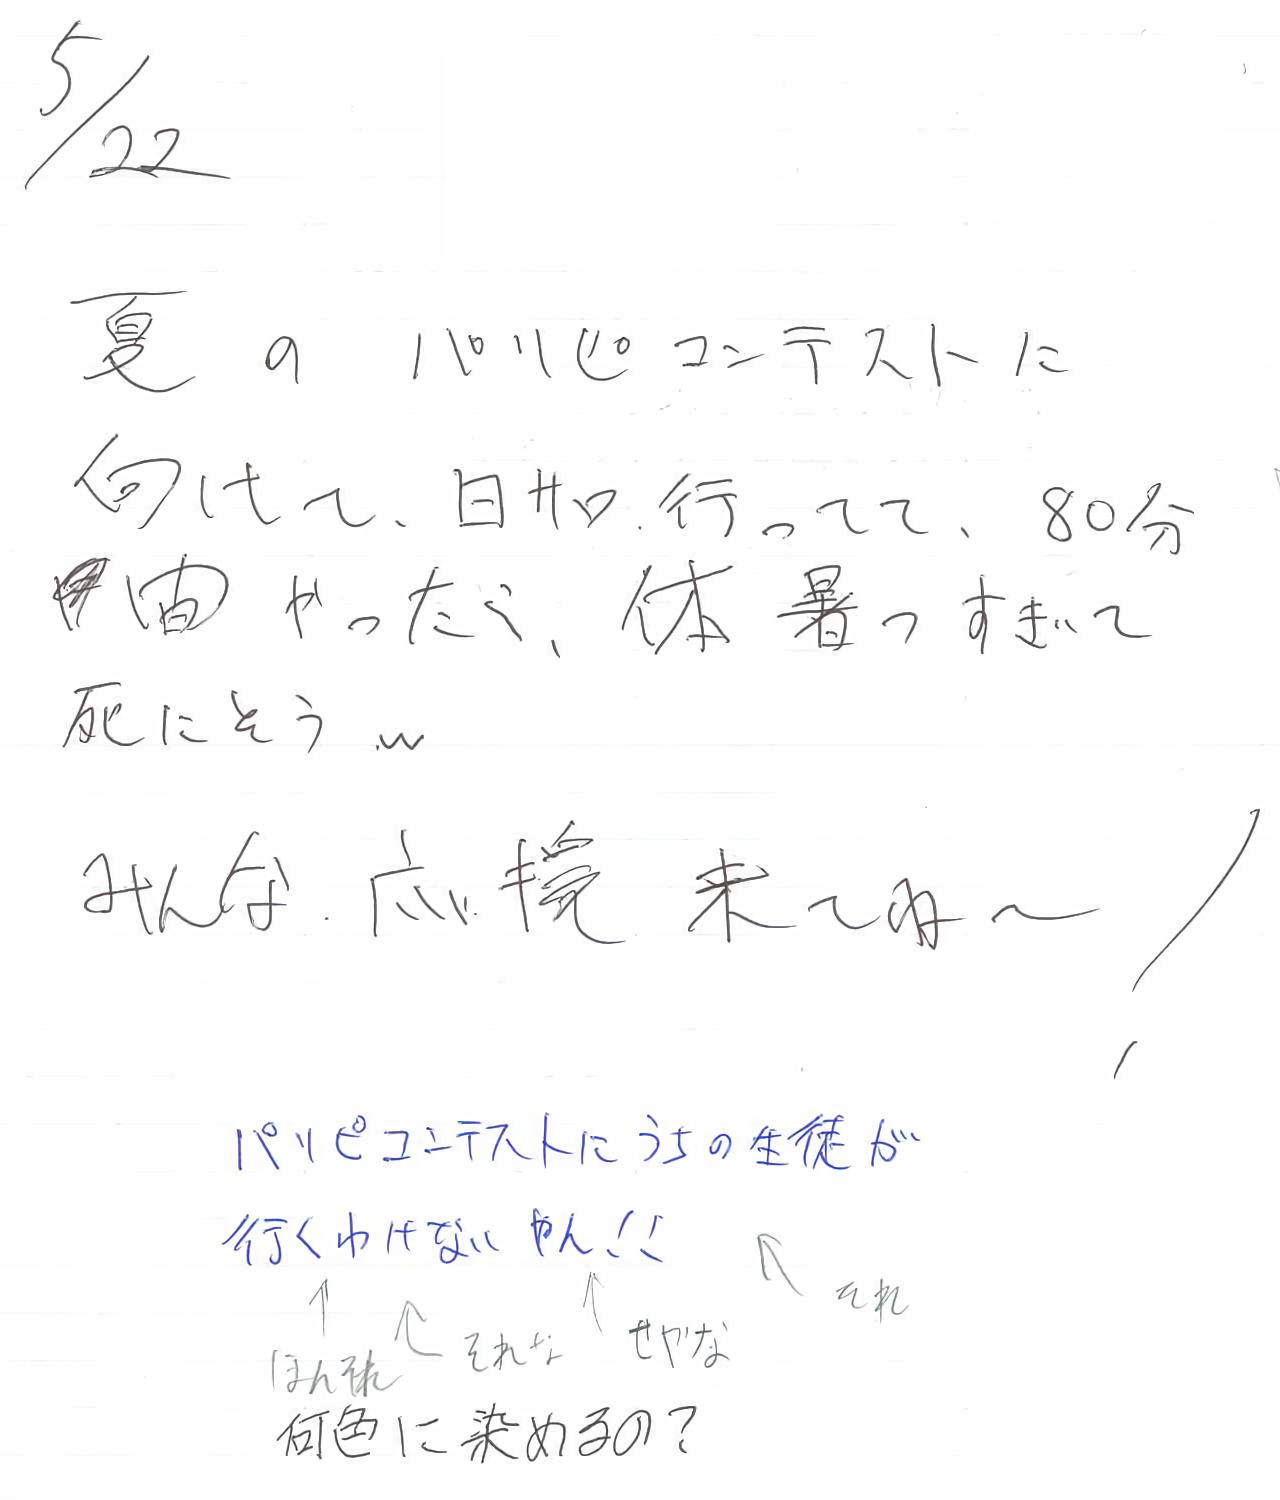 5/22
夏のパリピコンテストに
向けて、日サロ行ってて、80分
間やったら、体暑っすぎて
死にそうw
みんな応援来てね〜!
パリピコンテストにうちの生徒が
行くわけないやん!!
↑ ↖ ↑ ↖ それ
ほんそれ それな せやな
何色に染めるの?